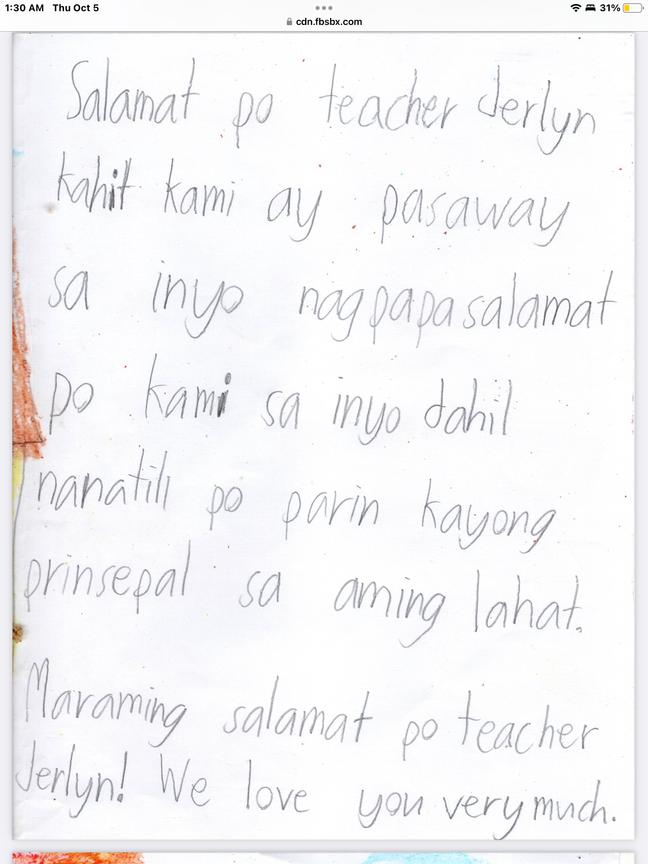 1:30 AM Thu Oct 5
31%
cdn.fbsbx.com
Salamat po teacher Jerlyn
kahit kami ay pasaway
sa inyo nagpapasalamat
po kami sa inyo dahil
nanatili po parin kayong
prinsepal sa aming lahat.
Maraming salamat po teacher
Jerlyn! We love you very much.